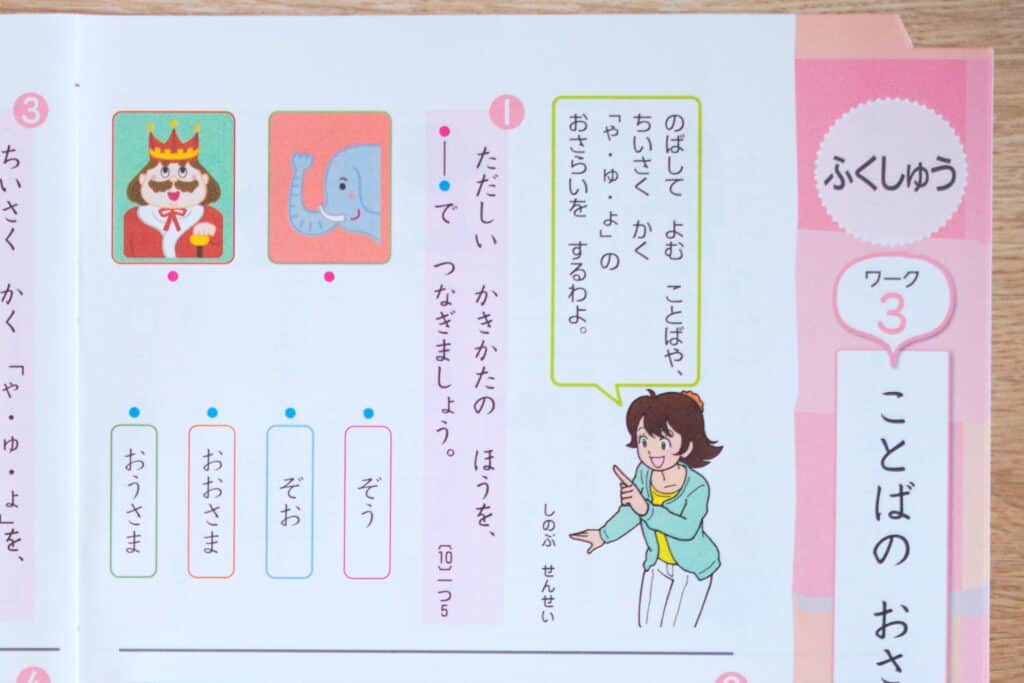 ふくしゅう
ワーク
3
ことばの おさ
のばして よむ ことばや、
ちいさく かく
「ゃ・ゅ・ょ」の
おさらいを するわよ。
しのぶ せんせい
1
ただしい かきかたの ほうを、
●―●で つなぎましょう。
〔10〕一つ5
ぞう
ぞお
おおさま
おうさま
3
ちいさく かく 「ゃ・ゅ・ょ」を、